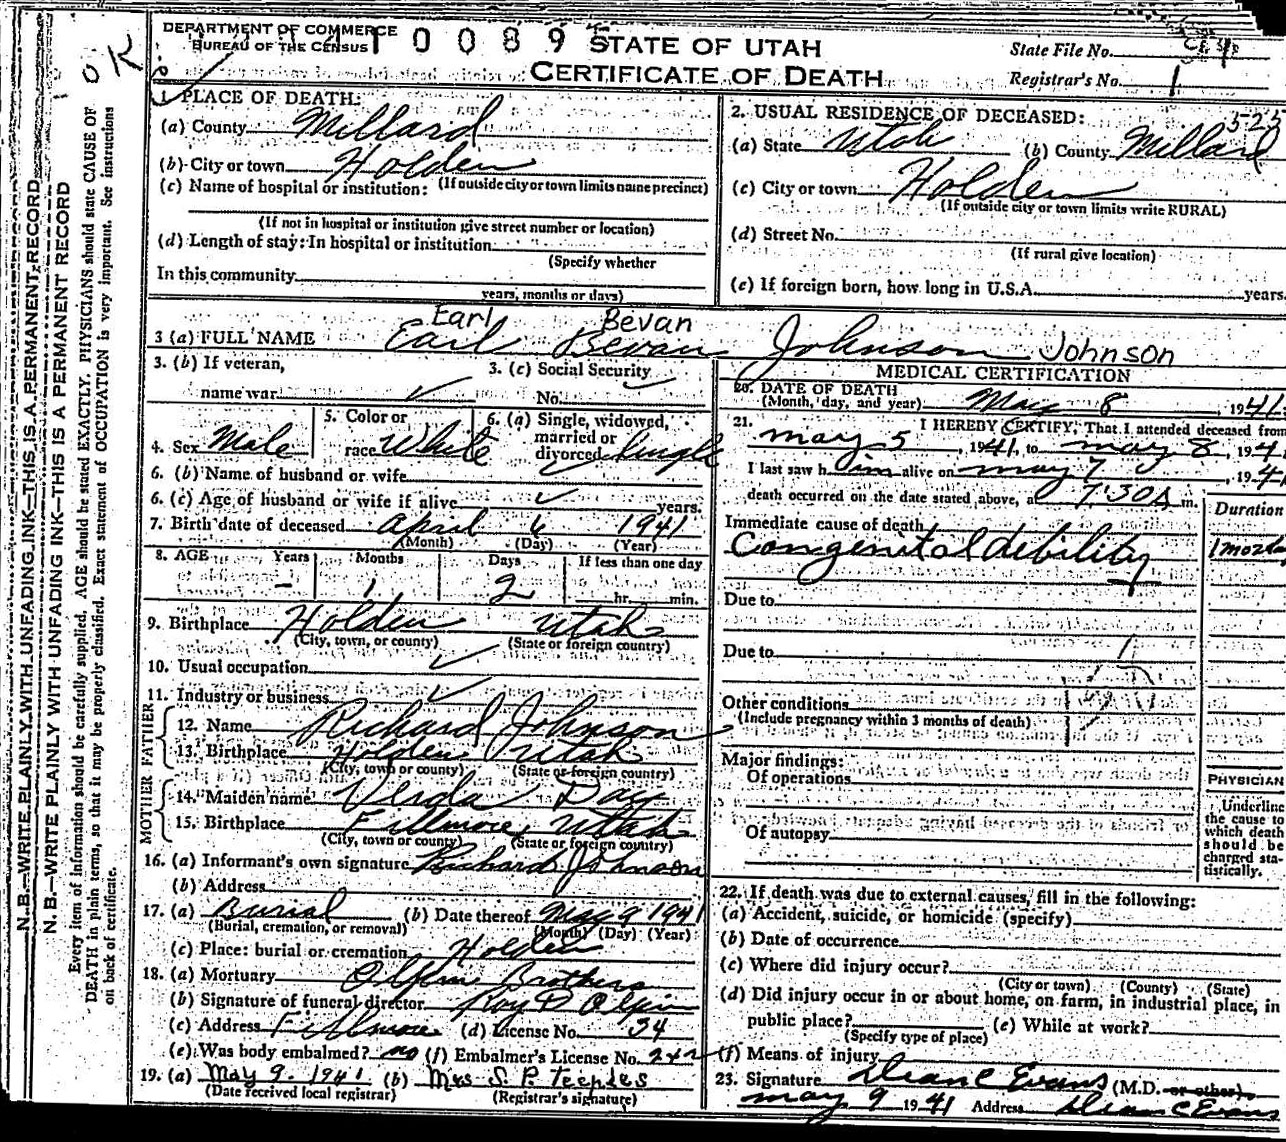 DEPARTMENT OF COMMERCE
BUREAU OF THE CENSUS
4 1 0 0 8 9
STATE OF UTAH
CERTIFICATE OF DEATH
State File No.
Registrar's No. 1
OK
N. B.—WRITE PLAINLY WITH UNFADING INK—THIS IS A PERMANENT RECORD
N. B.—WRITE PLAINLY WITH UNFADING INK—THIS IS A PERMANENT RECORD
Every item of information should be carefully supplied. AGE should be stated EXACTLY. PHYSICIANS should state CAUSE OF
DEATH in plain terms, so that it may be properly classified. Exact statement of OCCUPATION is very important. See instructions
on back of certificate.
1. PLACE OF DEATH:
(a) County Millard
(b) City or town Holden
(If outside city or town limits name precinct)
(c) Name of hospital or institution:
(If not in hospital or institution give street number or location)
(d) Length of stay: In hospital or institution
(Specify whether
In this community
years, months or days)
2. USUAL RESIDENCE OF DECEASED: 525
(a) State Utah (b) County Millard
(c) City or town Holden
(If outside city or town limits write RURAL)
(d) Street No.
(If rural give location)
(e) If foreign born, how long in U.S.A. years.
Earl Bevan
3 (a) FULL NAME Earl Bevan Johnson Johnson
3. (b) If veteran,
name war
3. (c) Social Security
No.
4. Sex Male
5. Color or
race White
6. (a) Single, widowed,
married or
divorced Single
6. (b) Name of husband or wife
6. (c) Age of husband or wife if alive years.
7. Birth date of deceased April 6 1941
(Month) (Day) (Year)
8. AGE Years Months Days If less than one day
- 1 2 hr. min.
9. Birthplace Holden Utah
(City, town, or county) (State or foreign country)
10. Usual occupation
11. Industry or business
FATHER
12. Name Richard Johnson
13. Birthplace Holden Utah
(City, town or county) (State or foreign country)
MOTHER
14. Maiden name Verda Day
15. Birthplace Fillmore, Utah
(City, town or county) (State or foreign country)
16. (a) Informant's own signature Richard Johnson
(b) Address
17. (a) Burial (b) Date thereof May 9 1941
(Burial, cremation, or removal) (Month) (Day) (Year)
(c) Place: burial or cremation Holden
18. (a) Mortuary Olpin Brothers
(b) Signature of funeral director Roy D Olpin
(c) Address Fillmore (d) License No. 34
(e) Was body embalmed? no (f) Embalmer's License No. 242
19. (a) May 9. 1941 (b) Mrs S. P. Teeples
(Date received local registrar) (Registrar's signature)
MEDICAL CERTIFICATION
20. DATE OF DEATH
(Month, day, and year) May 8, 1941
21. I HEREBY CERTIFY, That I attended deceased from
may 5, 1941, to may 8, 194
I last saw h im alive on may 7, 194
death occurred on the date stated above, at 7:30A m.
Duration
Immediate cause of death
Congenital debility 1 month
Due to
Due to
Other conditions
(Include pregnancy within 3 months of death)
Major findings:
Of operations
Of autopsy
PHYSICIAN
Underline
the cause to
which death
should be
charged sta-
tistically.
22. If death was due to external causes, fill in the following:
(a) Accident, suicide, or homicide (specify)
(b) Date of occurrence
(c) Where did injury occur?
(City or town) (County) (State)
(d) Did injury occur in or about home, on farm, in industrial place, in
public place? (e) While at work?
(Specify type of place)
(f) Means of injury
23. Signature Dean C Evans (M.D. or other)
may 9 1941 Address Dean C Evans